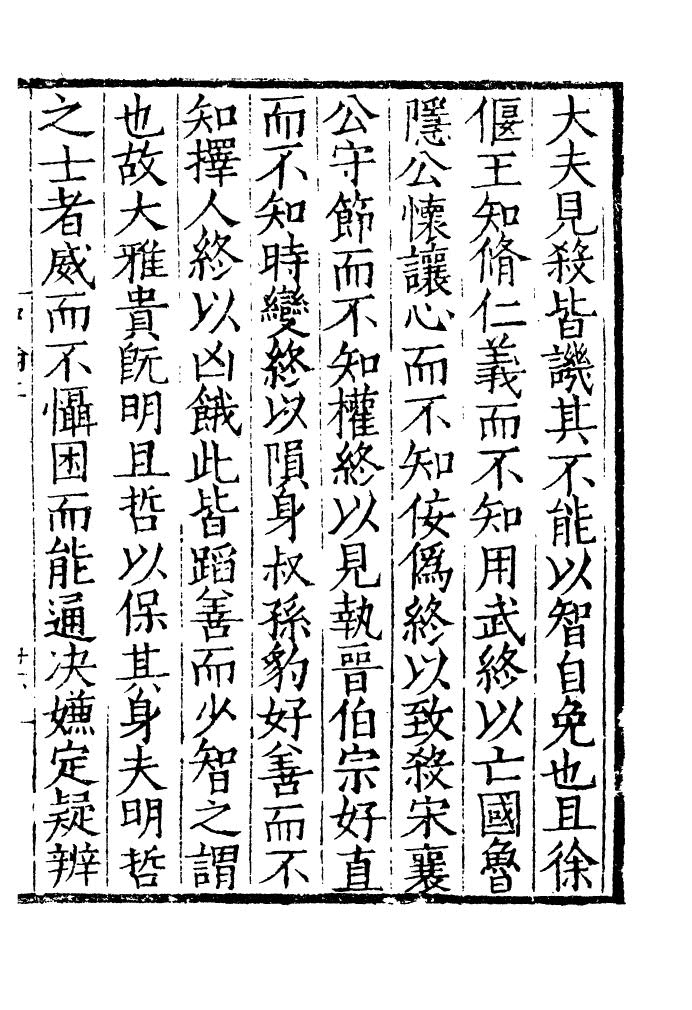 大夫見殺皆譏其不能以智自免也且徐
偃王知脩仁義而不知用武終以亡國魯
隱公懷讓心而不知佞僞終以致殺宋襄
公守節而不知權終以見執晉伯宗好直
而不知時變終以隕身叔孫豹好善而不
知擇人終以凶餓此皆蹈善而少智之謂
也故大雅貴旣明且哲以保其身夫明哲
之士者威而不懾困而能通决嫌定疑辨